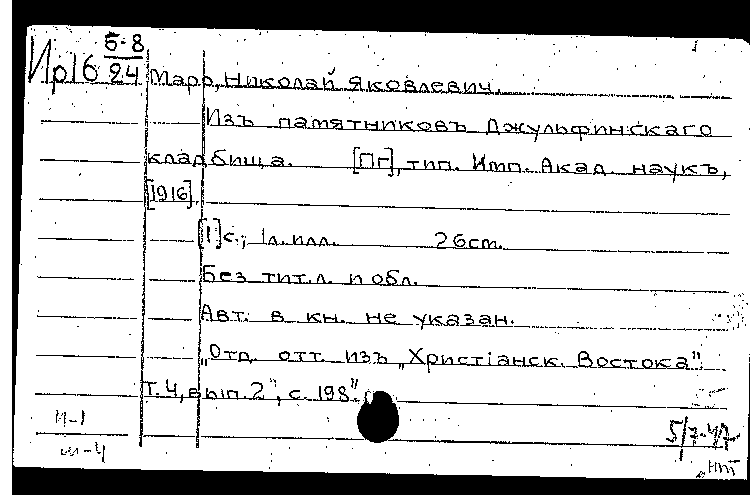 Ир16 5·8/24
Марр, Николай Яковлевич.
Изъ памятниковъ Джульфинскаго
кладбища. [Пг], тип. Имп. Акад. наукъ,
[1916].
[1]с.; 1л. илл. 26cm.
Без тит.л. и обл.
Авт. в кн. не указан.
„Отд. отт. изъ „Христіанск. Востока".
Т. 4, вып. 2", с. 198"
5/7-47